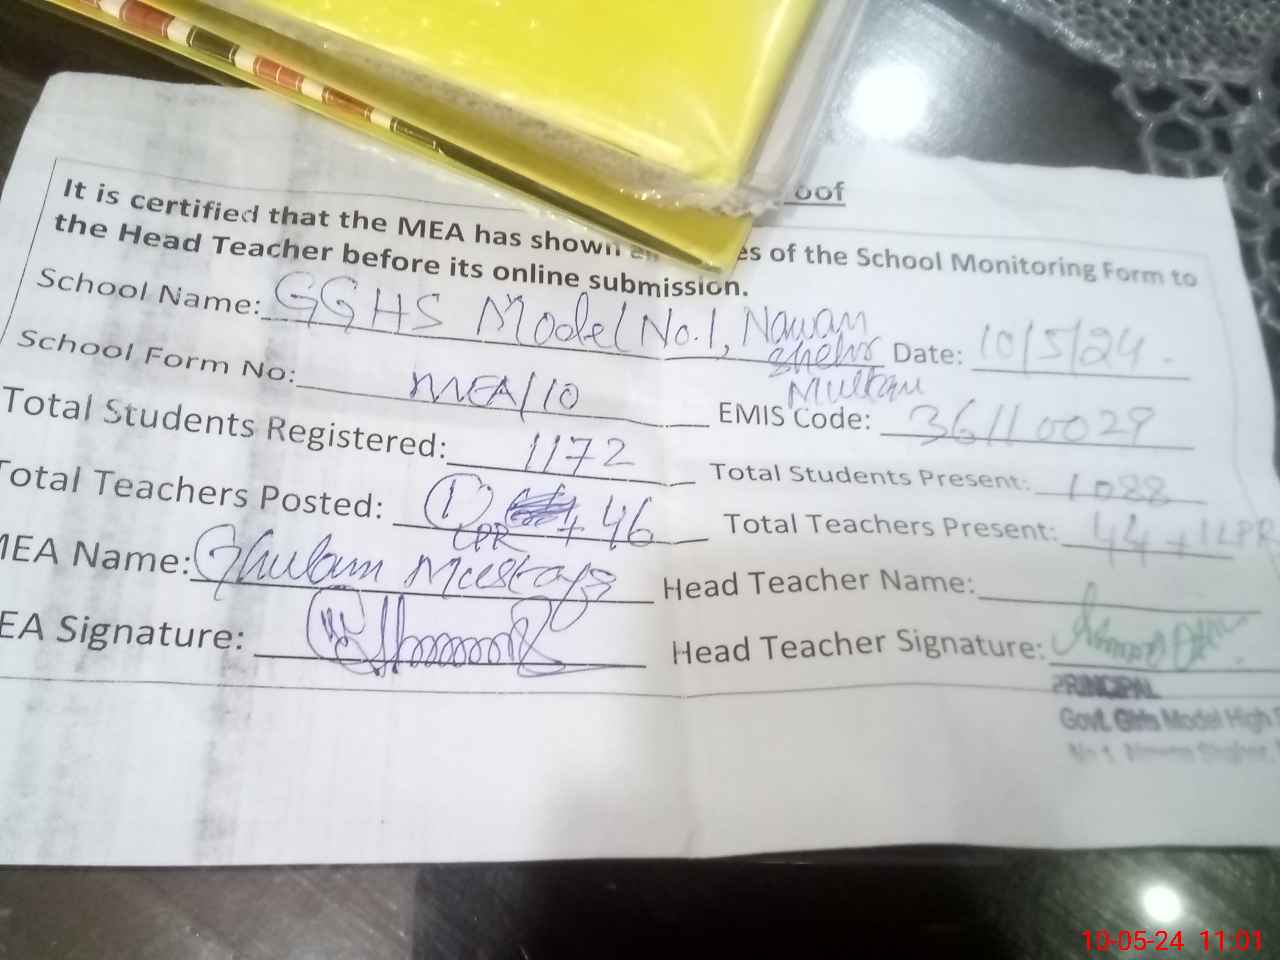 oof
It is certified that the MEA has shown es of the School Monitoring Form to
the Head Teacher before its online submission.
School Name: GGHS Model No.1, Nawan
Shehr
Multan
Date: 10/5/24.
School Form No: MEA/10
EMIS Code: 36110029
Total Students Registered: 1172
Total Students Present: 1088
Total Teachers Posted: 1 + 46
LPR
Total Teachers Present: 44+1LPR
MEA Name: Ghulam Mustafa
Head Teacher Name:
EA Signature:
Head Teacher Signature:
PRINCIPAL
Govt. Girls Model High
No 1, Nawan Shaher,
10-05-24 11:01